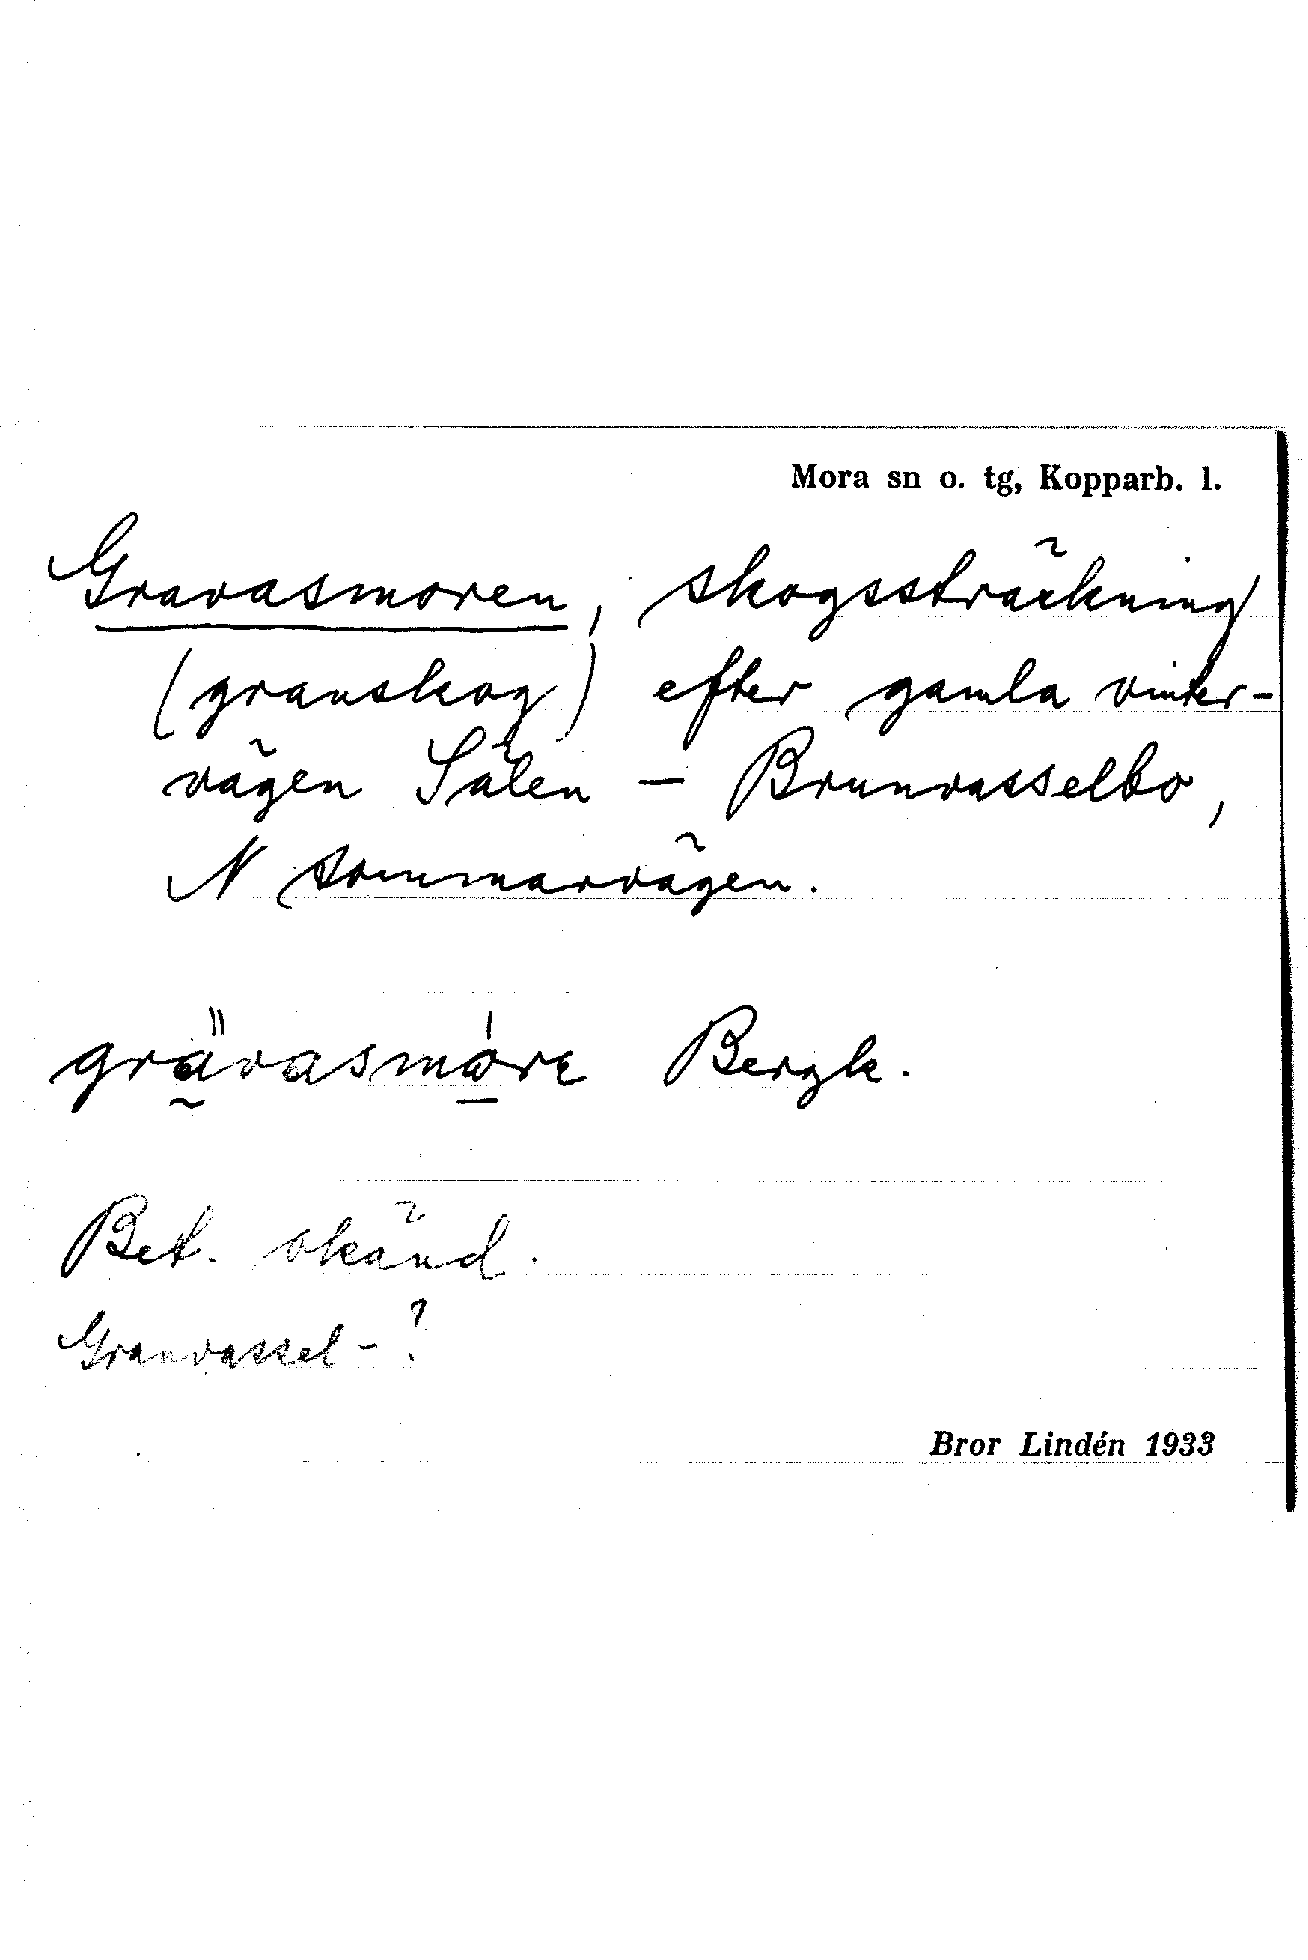 Mora sn o. tg, Kopparb. l.
Gravasmoren, skogssträckning
(granskog) efter gamla vinter-
vägen Sälen – Brunvasselbo,
N sommarvägen.
grävasmóre Bergk.
Bet. okänd.
Granvassel-?
Bror Lindén 1933